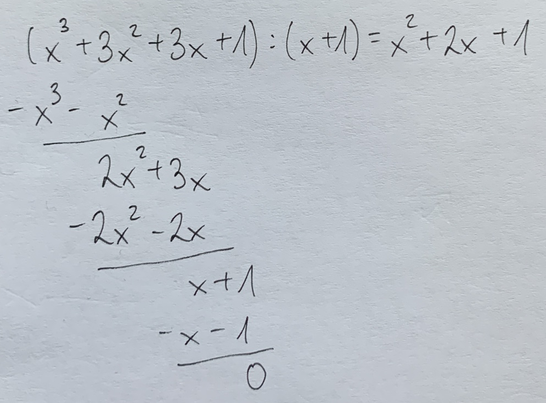 (x³+3x²+3x+1):(x+1)=x²+2x+1
-x³-x²
2x²+3x
-2x²-2x
x+1
-x-1
0